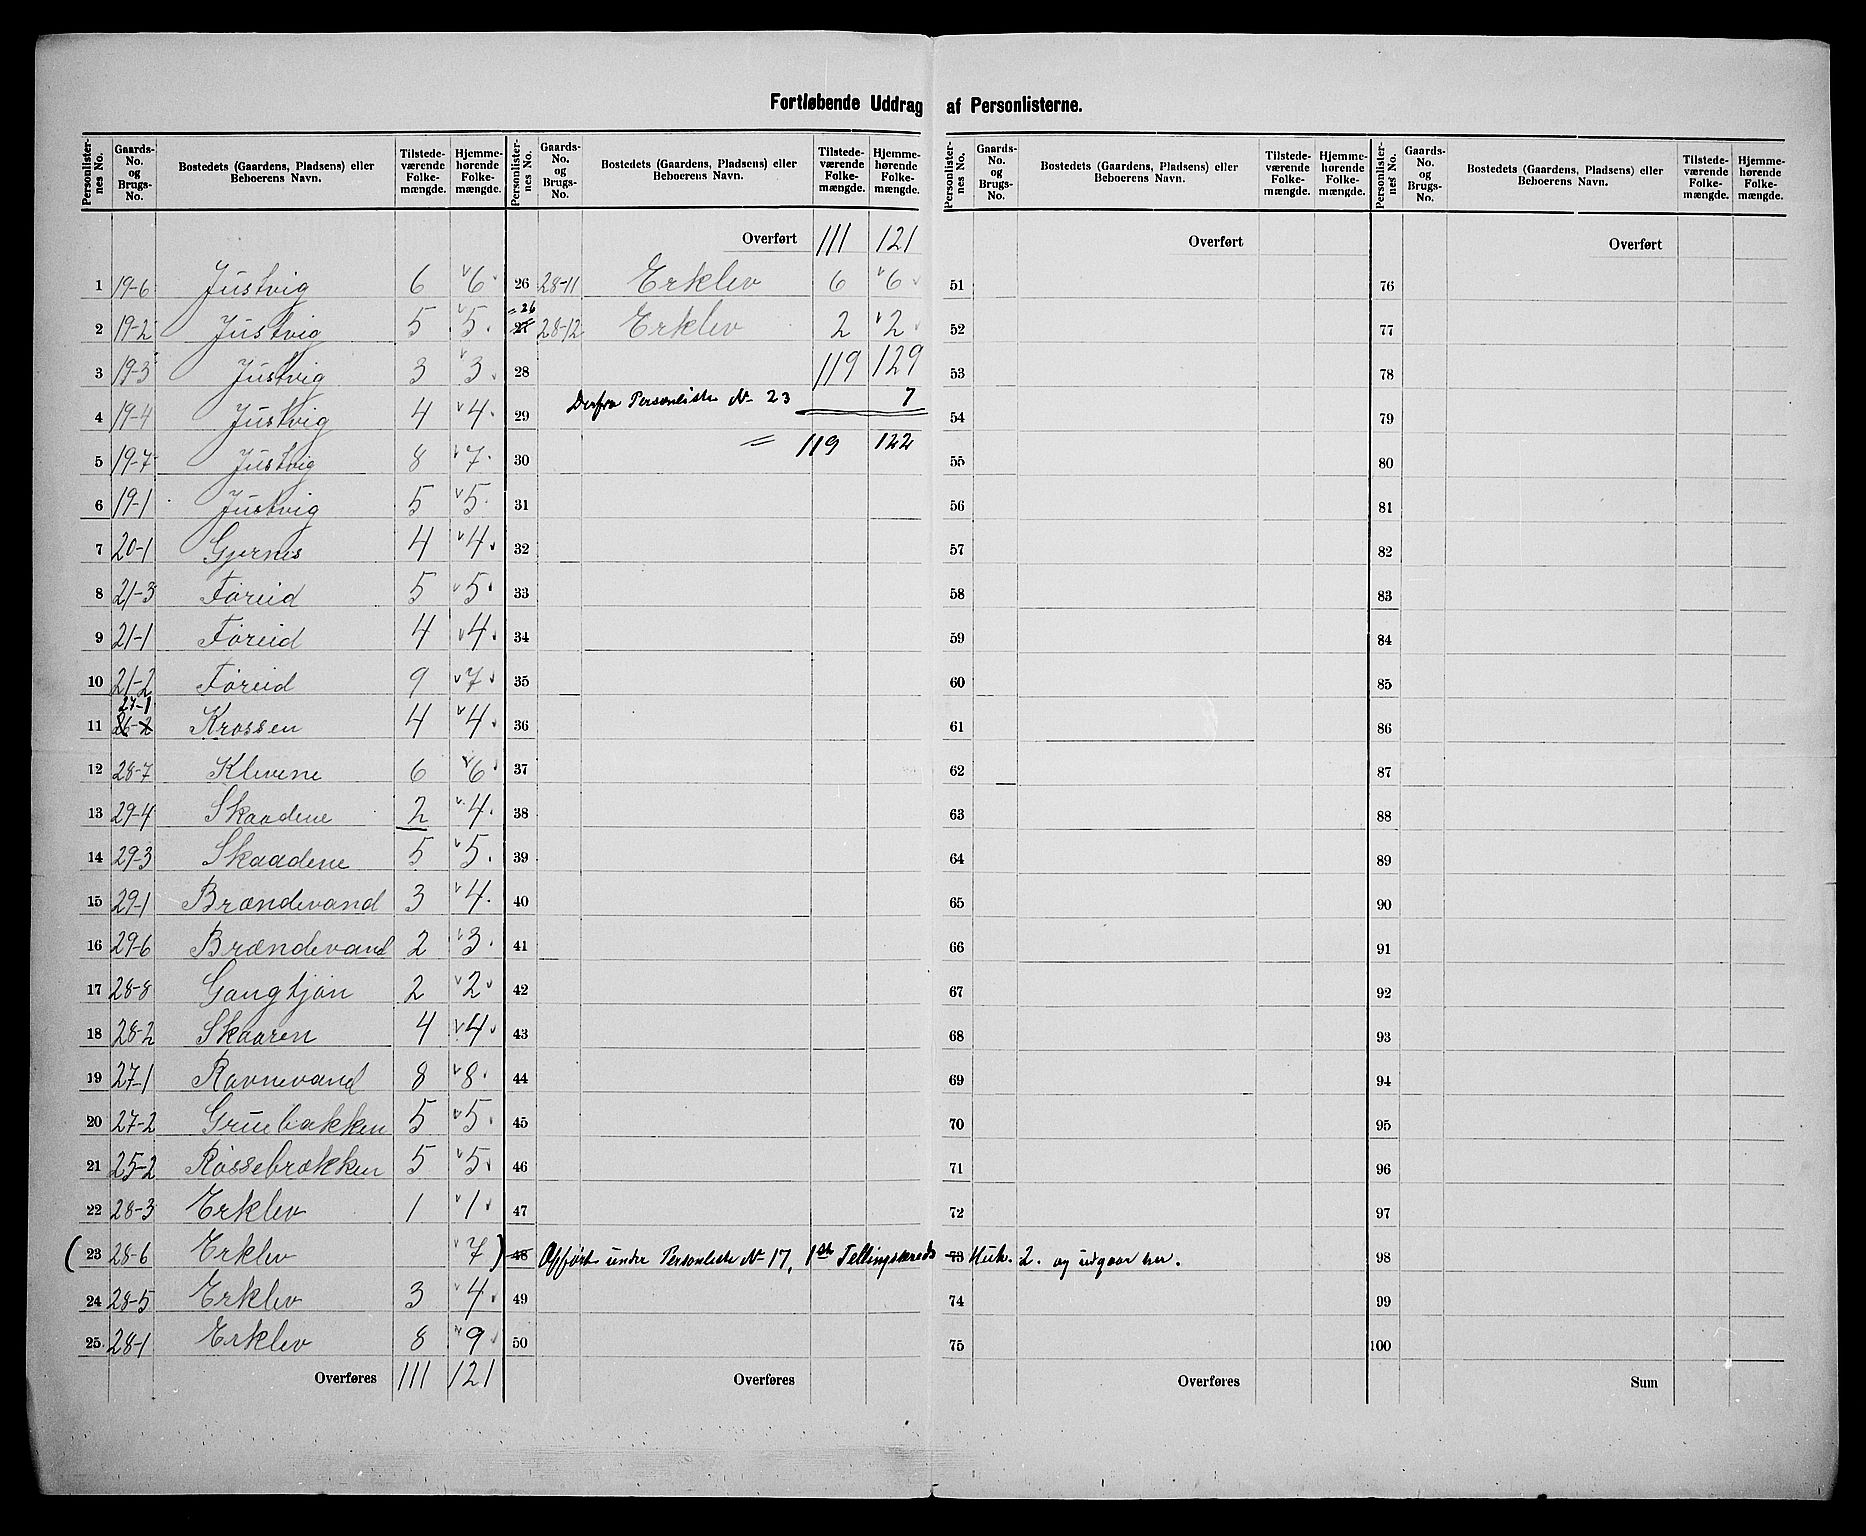 Fortløbende Uddrag af Personlisterne.
Personlisternes No. | Gaards-No. og Brugs-No. | Bostedets (Gaardens, Pladsens) eller Beboerens Navn. | Tilstedeværende Folkemængde. | Hjemmehørende Folkemængde.
1 19-6 Justvig 6 v 6
2 19-2 Justvig 5 v 5
3 19-3 Justvig 3 v 3
4 19-4 Justvig 4 v 4
5 19-7 Justvig 8 v 7
6 19-1 Justvig 5 v 5
7 20-1 Gjernes 4 v 4
8 21-3 Føreid 5 v 5
9 21-1 Føreid 4 v 4
10 21-2 Føreid 9 v 7
27-1
11 26-2 Krossen 4 v 4
12 28-7 Klevene 6 v 6
13 29-4 Skaadene 2 v 4
14 29-3 Skaadene 5 v 5
15 29-1 Brændevand 3 v 4
16 29-6 Brændevand 2 v 3
17 28-8 Gangtjøn 2 v 2
18 28-2 Skaaren 4 v 4
19 27-1 Ravnevand 8 v 8
20 27-2 Gruebakken 5 v 5
21 25-2 Røssebrækken 5 v 5
22 28-3 Erklev 1 v 1
(23 28-6 Erklev v 7)
24 28-5 Erklev 3 v 4
25 28-1 Erklev 8 v 9
Overføres 111 121
Personlisternes No. | Gaards-No. og Brugs-No. | Bostedets (Gaardens, Pladsens) eller Beboerens Navn. | Tilstedeværende Folkemængde. | Hjemmehørende Folkemængde.
Overført 111 121
26 28-11 Erklev 6 v 6
= 26
27 28-12 Erklev 2 v 2
28 119 129
29 Derfra Personliste N- 23 7
30 = 119 122
31
32
33
34
35
36
37
38
39
40
41
42
43
44
45
46
47
48 Opført under Personliste N- 17, 1ste Tellingskreds 73 Huk. 2. og udgaar her.
49
50
Overføres
Personlisternes No. | Gaards-No. og Brugs-No. | Bostedets (Gaardens, Pladsens) eller Beboerens Navn. | Tilstedeværende Folkemængde. | Hjemmehørende Folkemængde.
Overført
51
52
53
54
55
56
57
58
59
60
61
62
63
64
65
66
67
68
69
70
71
72
74
75
Overføres
Personlisternes No. | Gaards-No. og Brugs-No. | Bostedets (Gaardens, Pladsens) eller Beboerens Navn. | Tilstedeværende Folkemængde. | Hjemmehørende Folkemængde.
Overført
76
77
78
79
80
81
82
83
84
85
86
87
88
89
90
91
92
93
94
95
96
97
98
99
100
Sum